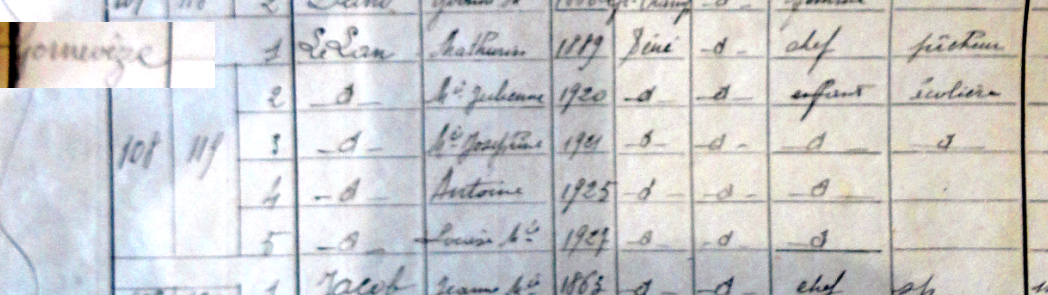 2
Gornevèze 1 Le Lan Mathurin 1889 Séné -d- chef pêcheur
2 -d- Mie Julienne 1920 -d- -d- enfant écolière
108 119 3 -d- Mie Joséphine 1921 -d- -d- d d
4 -d- Antoine 1925 -d- -d- d
5 -d- Louise Mie 1927 -d- -d- d
1 Jacob Jeanne Mie 1863 -d- -d- chef sp